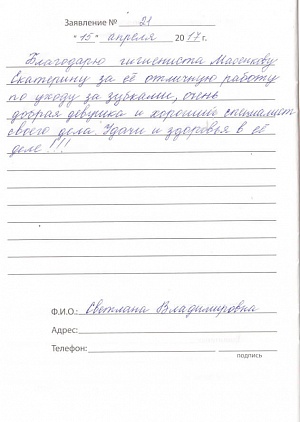 Заявление № 21
"15" апреля 2017 г.
Благодарю гигиениста
Екатерину за её отличную работу
по уходу за зубками, очень
добрая девушка и хороший специалист
своего дела. Удачи и здоровья в её
деле!!!
Ф.И.О: Светлана Владимировна
Адрес:
Телефон:
подпись